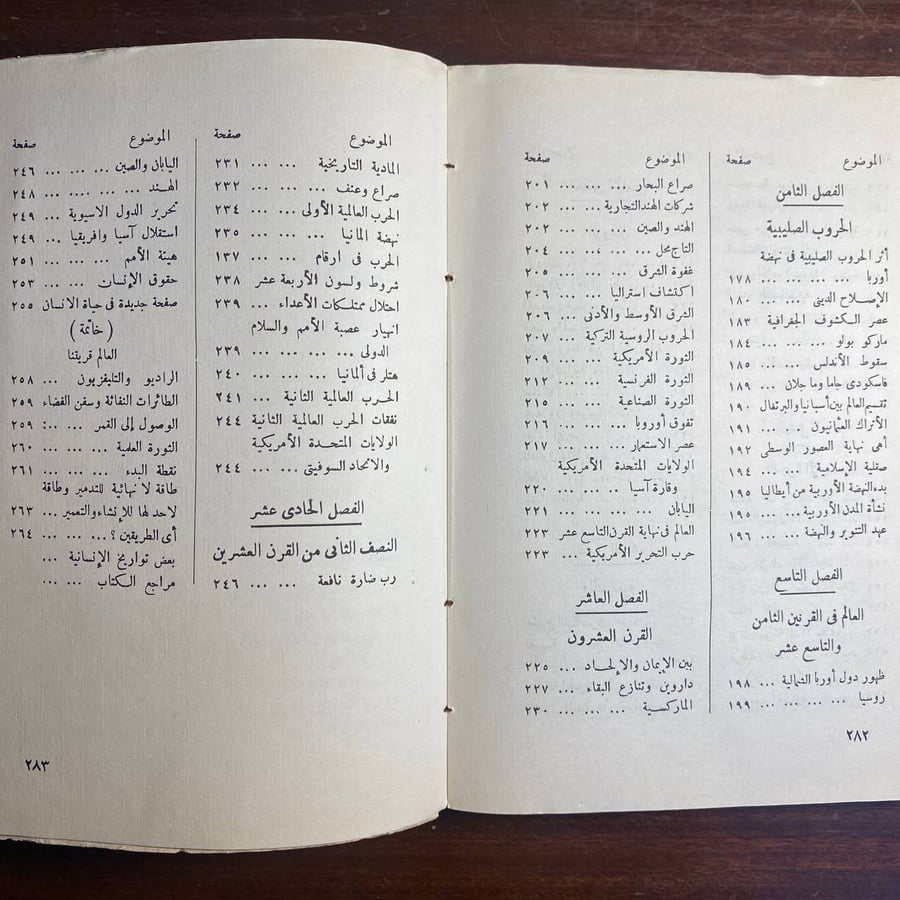 الموضوع صفحة
الفصل الثامن
الحروب الصليبية
أثر الحروب الصليبية فى نهضة
أوربا ... ... ... ... ١٧٨
الإصلاح الدينى ... ... ١٨٠
عصر الكشوف الجغرافية ١٨٣
ماركو بولو ... ... ... ١٨٤
سقوط الأندلس ... ... ١٨٥
فاسكودى جاما وماجلان ... ١٨٩
تقسيم العالم بين أسبانيا والبرتغال ١٩٠
الأتراك العثمانيون ... ... ١٩١
أهى نهاية العصور الوسطى ١٩٢
صقلية الإسلامية ... ... ١٩٤
بدء النهضة الأوربية من أيطاليا ١٩٥
نشأة المدن الأوربية ... ... ١٩٥
عهد التنوير والنهضة ... ... ١٩٦
الفصل التاسع
العالم فى القرنين الثامن
والتاسع عشر
ظهور دول أوربا الشمالية ... ١٩٨
روسيا ... ... ... ... ١٩٩
الموضوع صفحة
صراع البحار ... ... ... ٢٠١
شركات الهند التجارية ... ... ٢٠٢
الهند والصين ... ... ... ٢٠٢
التاج محل ... ... ... ... ٢٠٤
غفوة الشرق ... ... ... ٢٠٥
اكتشاف استراليا ... ... ٢٠٦
الشرق الأوسط والأدنى ... ٢٠٦
الحروب الروسية التركية ... ٢٠٧
الثورة الأمريكية ... ... ٢٠٩
الثورة الفرنسية ... ... ٢١٢
الثورة الصناعية ... ... ٢١٥
تفوق أوروبا ... ... ... ٢١٦
عصر الاستعمار ... ... ... ٢١٧
الولايات المتحدة الأمريكية
وقارة آسيا ... ... ... ٢٢٠
اليابان ... ... ... ... ٢٢١
العالم فى نهاية القرن التاسع عشر ٢٢٣
حرب التحرير الأمريكية ... ٢٢٣
الفصل العاشر
القرن العشرون
بين الإيمان والإلحاد ... ٢٢٥
داروين وتنازع البقاء ... ٢٢٧
الماركسية ... ... ... ٢٣٠
٢٨٢
الموضوع صفحة
المادية التاريخية ... ... ٢٣١
صراع وعنف ... ... ... ٢٣٢
الحرب العالمية الأولى ... ... ٢٣٤
نهضة المانيا ... ... ... ٢٣٥
الحرب فى ارقام ... ... ١٣٧
شروط ولسون الأربعة عشر ٢٣٨
احتلال ممتلكات الأعداء ... ٢٣٩
انهيار عصبة الأمم والسلام
الدولى ... ... ... ... ٢٣٩
هتلر فى ألمانيا ... ... ... ٢٤٠
الحرب العالمية الثانية ... ٢٤١
نفقات الحرب العالمية الثانية ٢٤٤
الولايات المتحدة الأمريكية
والاتحاد السوفيتى ... ... ٢٤٤
الفصل الحادى عشر
النصف الثانى من القرن العشرين
رب ضارة نافعة ... ... ٢٤٦
الموضوع صفحة
اليابان والصين ... ... ... ٢٤٦
الهند ... ... ... ... ٢٤٨
تحرير الدول الاسيوية ... ٢٤٩
استقلال آسيا وافريقيا ... ٢٤٩
هيئة الأمم ... ... ... ٢٥١
حقوق الإنسان ... ... ٢٥٣
صفحة جديدة فى حياة الانسان ٢٥٥
( خاتمة )
العالم قريتنا
الراديو والتليفزيون ... ٢٥٨
الطائرات النفاثة وسفن الفضاء ٢٥٩
الوصول إلى القمر ... ... ٢٥٩
الثورة العلمية ... ... ٢٦٠
نقطة البدء ... ... ... ٢٦١
طاقة لا نهائية للتدمير وطاقة
لاحد لها للإنشاء والتعمير ... ٢٦٣
أى الطريقين ؟ ... ... ... ٢٦٤
بعض تواريخ الإنسانية ... ...
مراجع الكتاب ... ...
٢٨٣